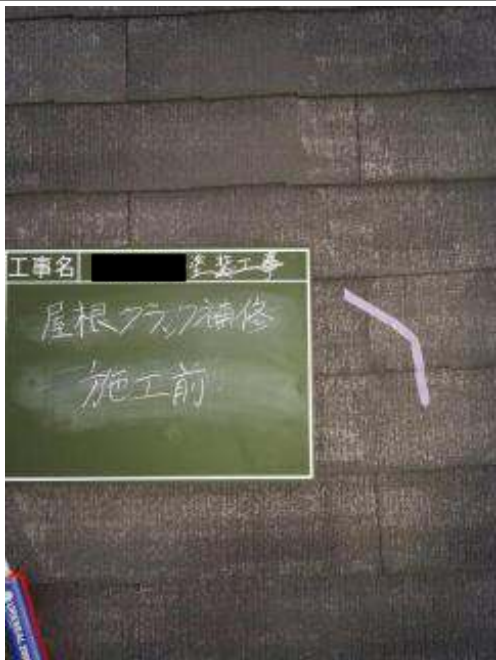 工事名 塗装工事
屋根クラック補修
施工前